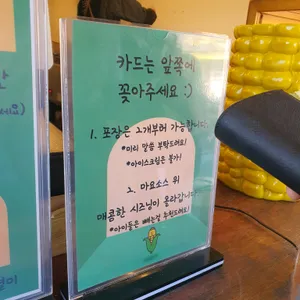 카드는 앞쪽에
꽂아주세요 :)
1. 포장은 2개부터 가능합니다.
*미리 말씀 부탁드려요!
*아이스크림은 불가!
2. 마요소스 위
매콤한 시즈닝이 올라갑니다!
*아이들은 빼는걸 추천드려요!